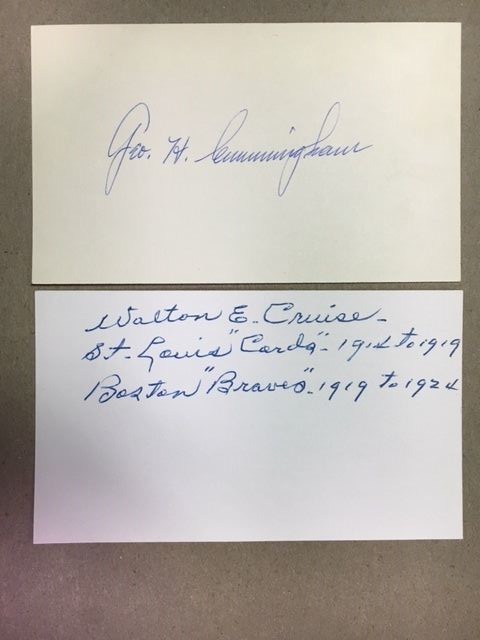 Geo. H. Cunningham
Walton E. Cruise -
St. Louis "Cards" - 1914 to 1919
Boston "Braves" - 1919 to 1924